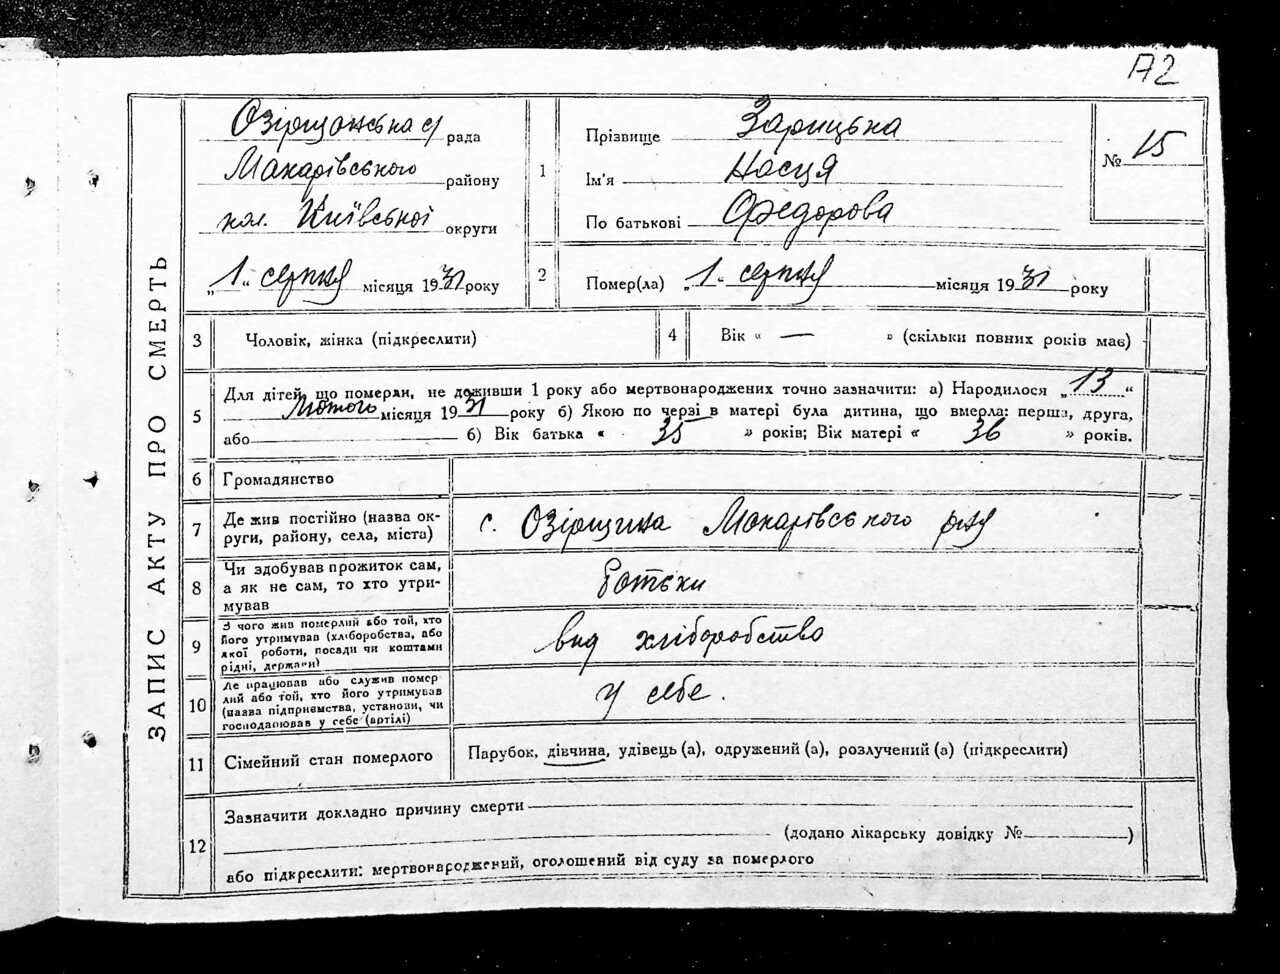 172
ЗАПИС АКТУ ПРО СМЕРТЬ
Озірщанська с/ рада
Макарівського району
кол. Київської округи
„1“ серпня місяця 1931 року
1
Прізвище Зарицька
Ім'я Настя
По батькові Федорова
№ 15
2
Помер(ла) „1“ серпня місяця 1931 року
3 Чоловік, жінка (підкреслити)
4 Вік « — » (скільки повних років має)
5
Для дітей що померли, не доживши 1 року або мертвонароджених точно зазначити: а) Народилося „13“
Лютого місяця 1931 року б) Якою по черзі в матері була дитина, що вмерла: перша, друга,
або б) Вік батька « 35 » років; Вік матері « 36 » років.
6 Громадянство
7
Де жив постійно (назва ок-
руги, району, села, міста)
с. Озірщина Макарівського р-ну
8
Чи здобував прожиток сам,
а як не сам, то хто утри-
мував
Батьки
9
З чого жив померлий або той, хто
його утримував (хліборобства, або
якої роботи, посади чи коштами
рідні, держави)
вид хліборобство
10
Де працював або служив помер
лий або той, хто його утримував
(назва підприємства, установи, чи
господарював у себе (артілі)
У себе.
11 Сімейний стан померлого
Парубок, дівчина, удівець (а), одружений (а), розлучений (а) (підкреслити)
12
Зазначити докладно причину смерти
(додано лікарську довідку № )
або підкреслити: мертвонароджений, оголошений від суду за померлого